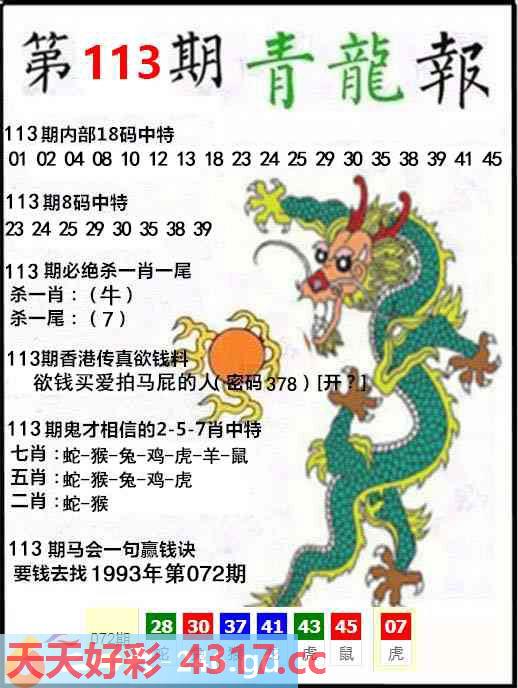 第113期 青龍報
113期内部18码中特
01 02 04 08 10 12 13 18 23 24 25 29 30 35 38 39 41 45
113期8码中特
23 24 25 29 30 35 38 39
113 期必绝杀一肖一尾
杀一肖：（牛）
杀一尾：（7）
113期香港传真欲钱料
欲钱买爱拍马屁的人(密码378)[开？]
113期鬼才相信的2-5-7肖中特
七肖：蛇-猴-兔-鸡-虎-羊-鼠
五肖：蛇-猴-兔-鸡-虎
二肖：蛇-猴
113 期马会一句赢钱诀
要钱去找1993年第072期
28 30 37 41 43 45 07
072期 蛇 虎 鼠 虎
天天好彩 4317.cc